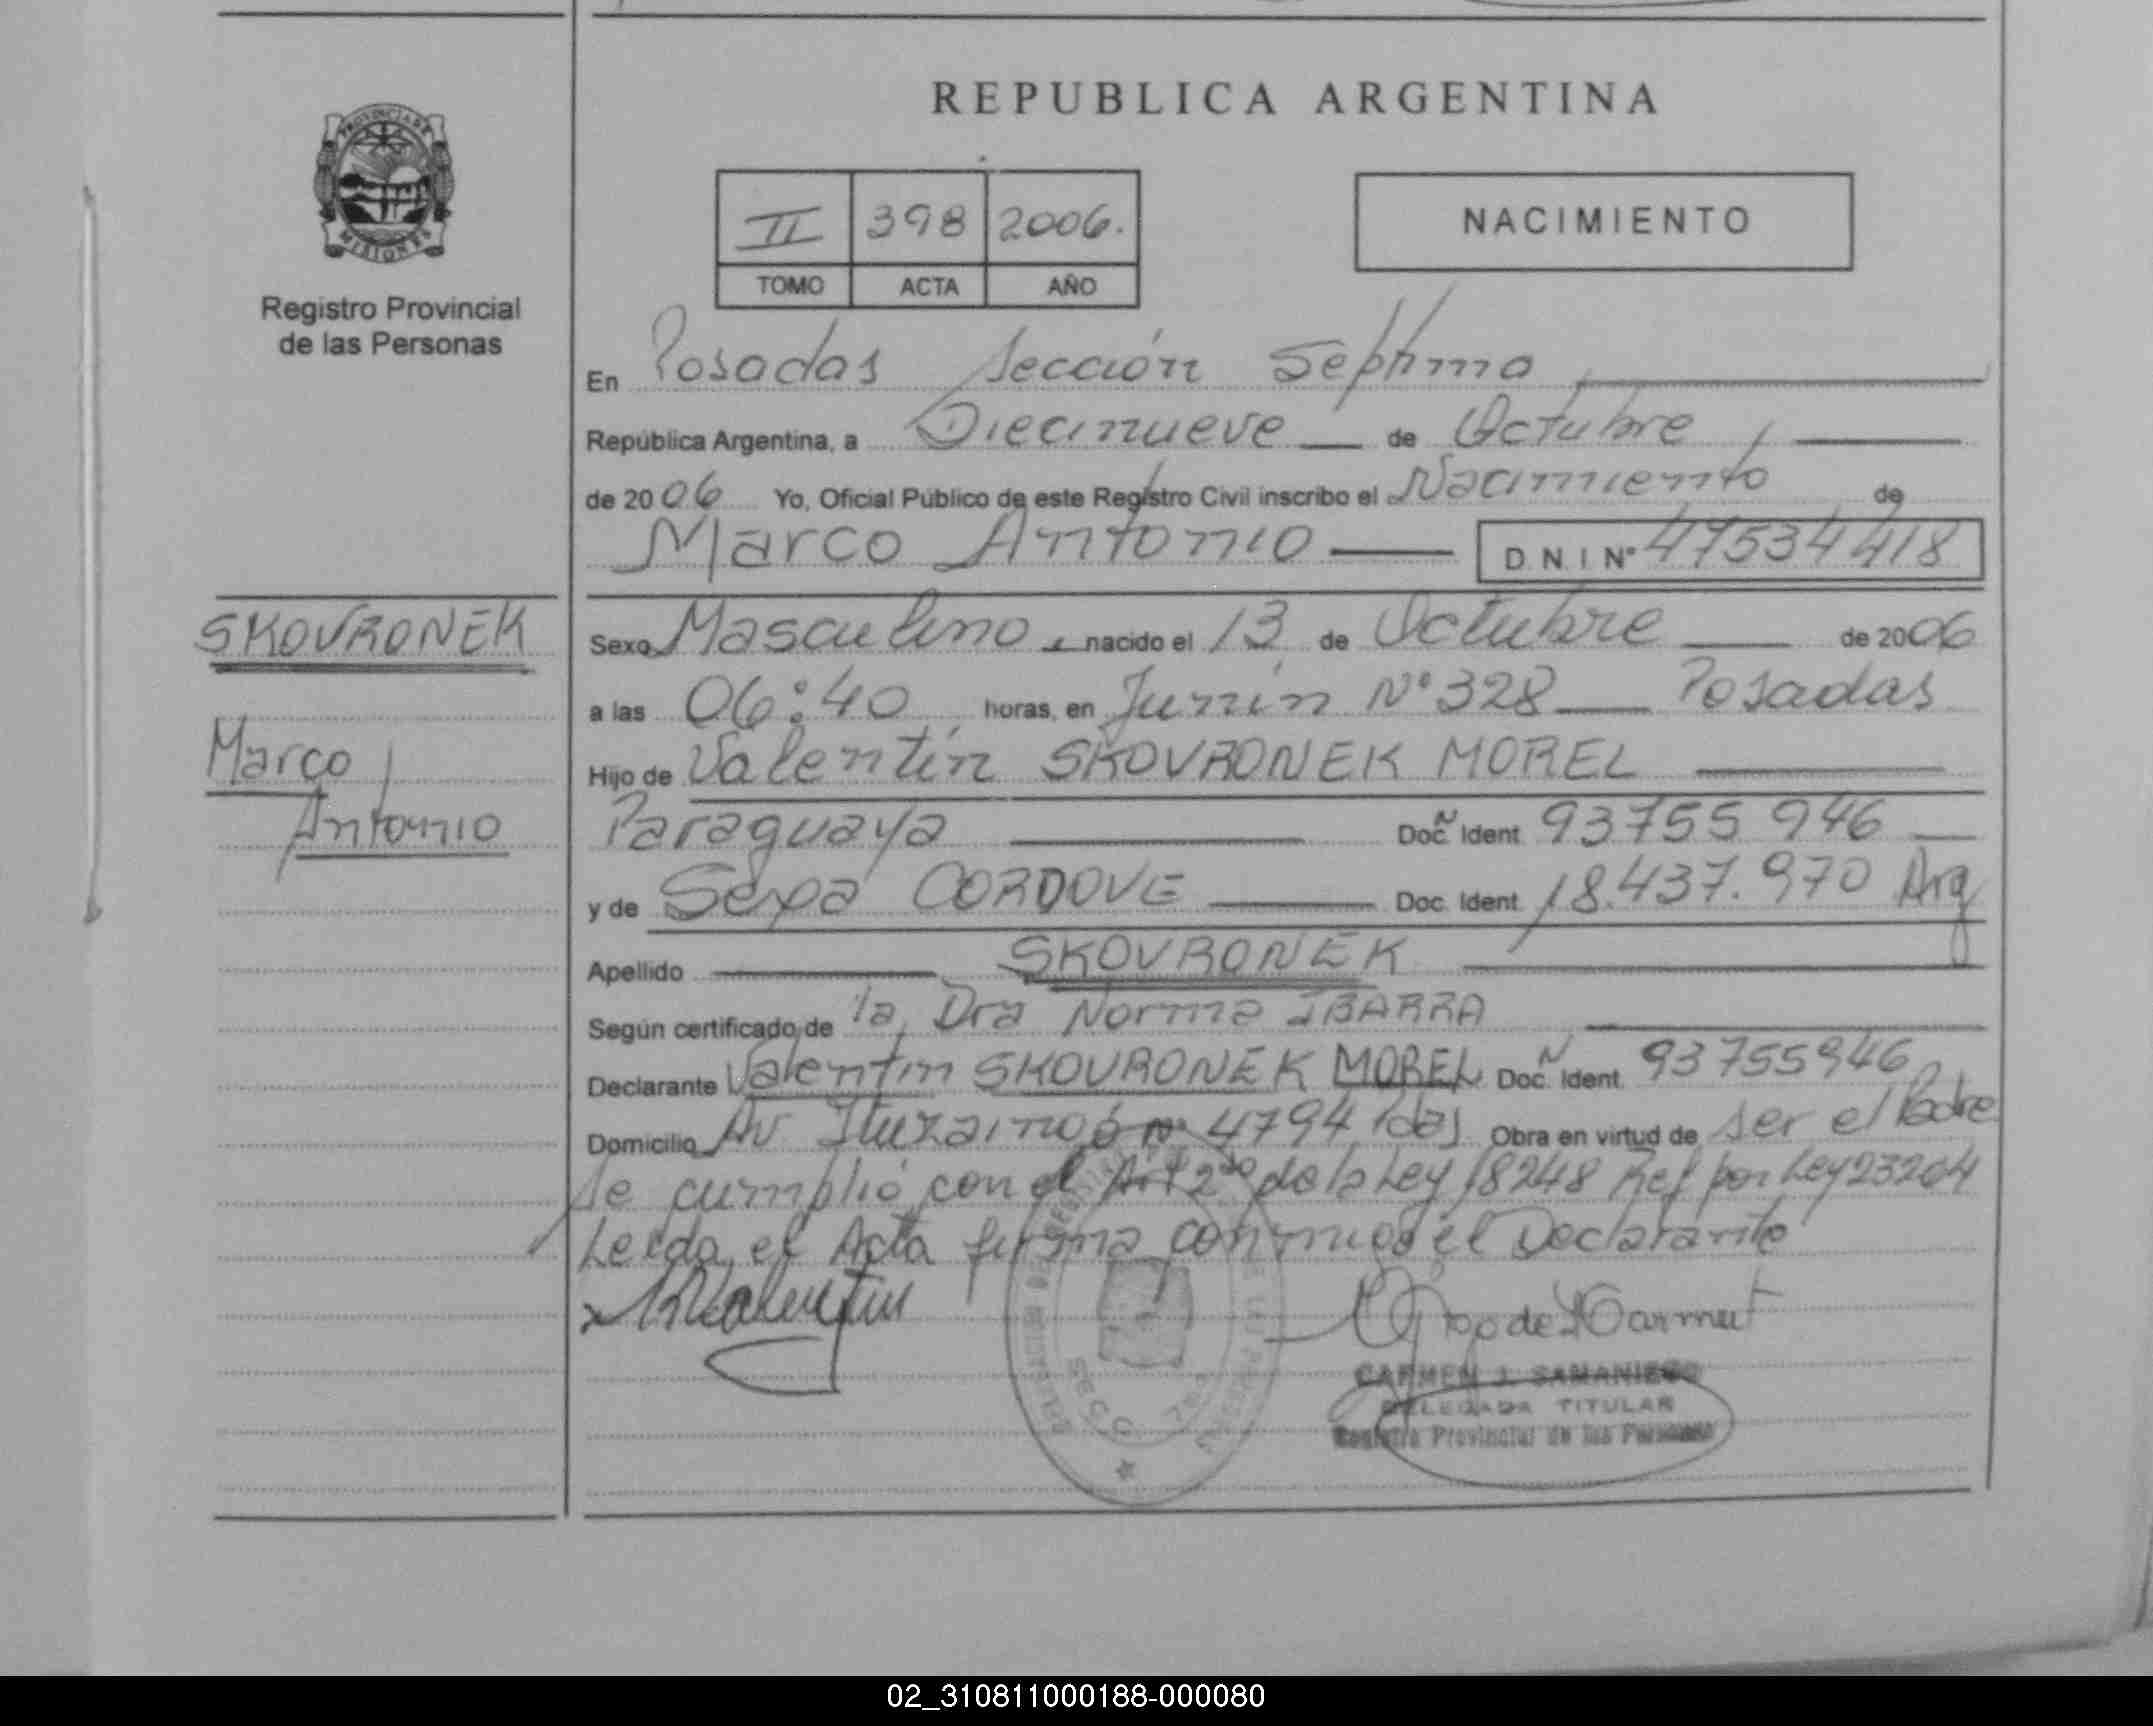 REPUBLICA ARGENTINA
PROVINCIA DE
MISIONES
Registro Provincial
de las Personas
II 398 2006.
TOMO ACTA AÑO
NACIMIENTO
En Posadas Sección Séptima
República Argentina, a Diecinueve de Octubre
de 2006 Yo, Oficial Público de este Registro Civil inscribo el Nacimiento de
Marco Antonio D.N.I Nº 47534418
SKOVRONEK
Marco
Antonio
Sexo Masculino, nacido el 13 de Octubre de 2006
a las 06:40 horas, en Junín Nº 328 Posadas
Hijo de Valentín SKOVRONEK MOREL
Paraguaya Doc. Ident. 93755946
y de CORDOVE Doc. Ident. 18.437.970 Arg
Apellido SKOVRONEK
Según certificado de la Dra Norma IBARRA
Declarante Valentín SKOVRONEK MOREL Doc. Ident. 93755946
Domicilio Av Ituzaingó Nº 4794 Pdas Obra en virtud de ser el Padre
Se cumplió con el Art 2do de la Ley 18248 Ref por Ley 23264
Leída el Acta firma conmigo el Declarante
Valentin
CARMEN J. SAMANIEGO
DELEGADA TITULAR
Registro Provincial de las Personas
02_310811000188-000080